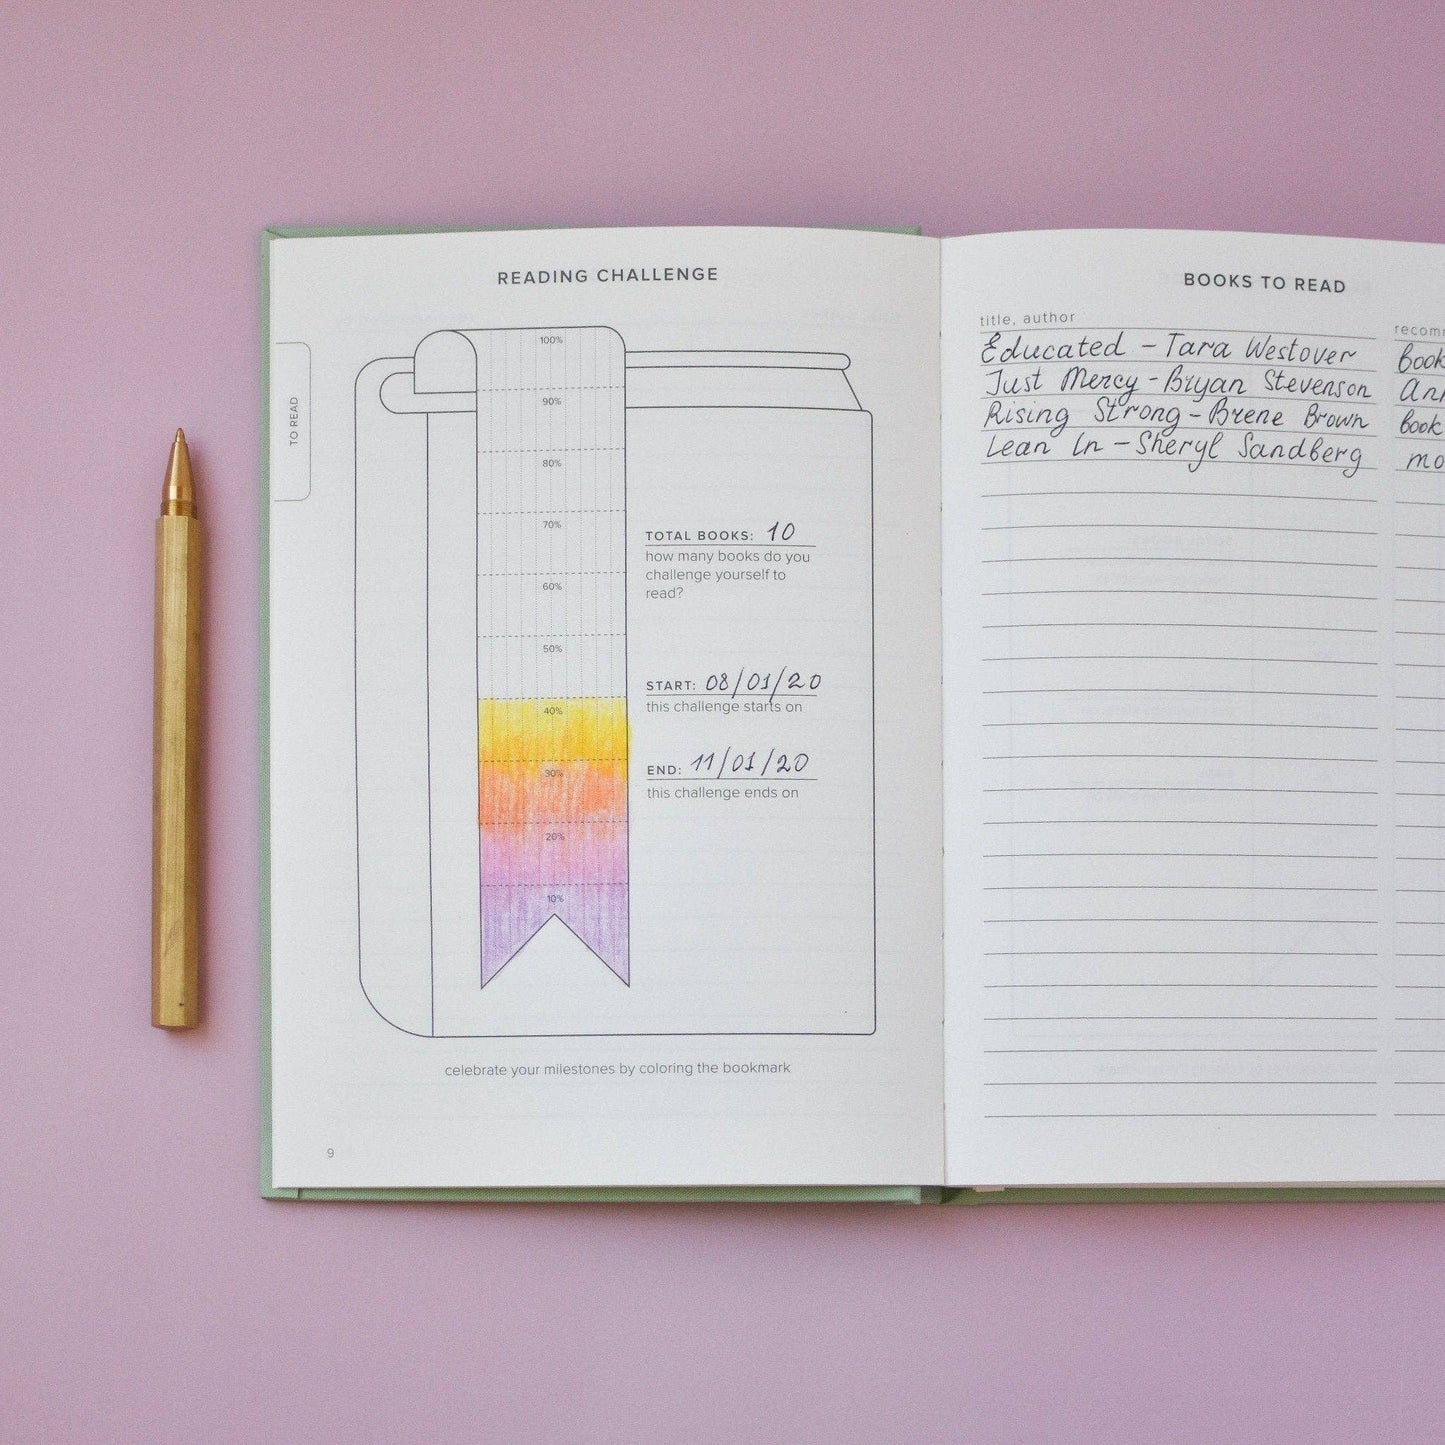 READING CHALLENGE
TO READ
100%
90%
80%
70%
60%
50%
40%
30%
20%
10%
TOTAL BOOKS: 10
how many books do you
challenge yourself to
read?
START: 08/01/20
this challenge starts on
END: 11/01/20
this challenge ends on
celebrate your milestones by coloring the bookmark
9
BOOKS TO READ
title, author
Educated - Tara Westover
Just Mercy - Bryan Stevenson
Rising Strong - Brene Brown
Lean In - Sheryl Sandberg